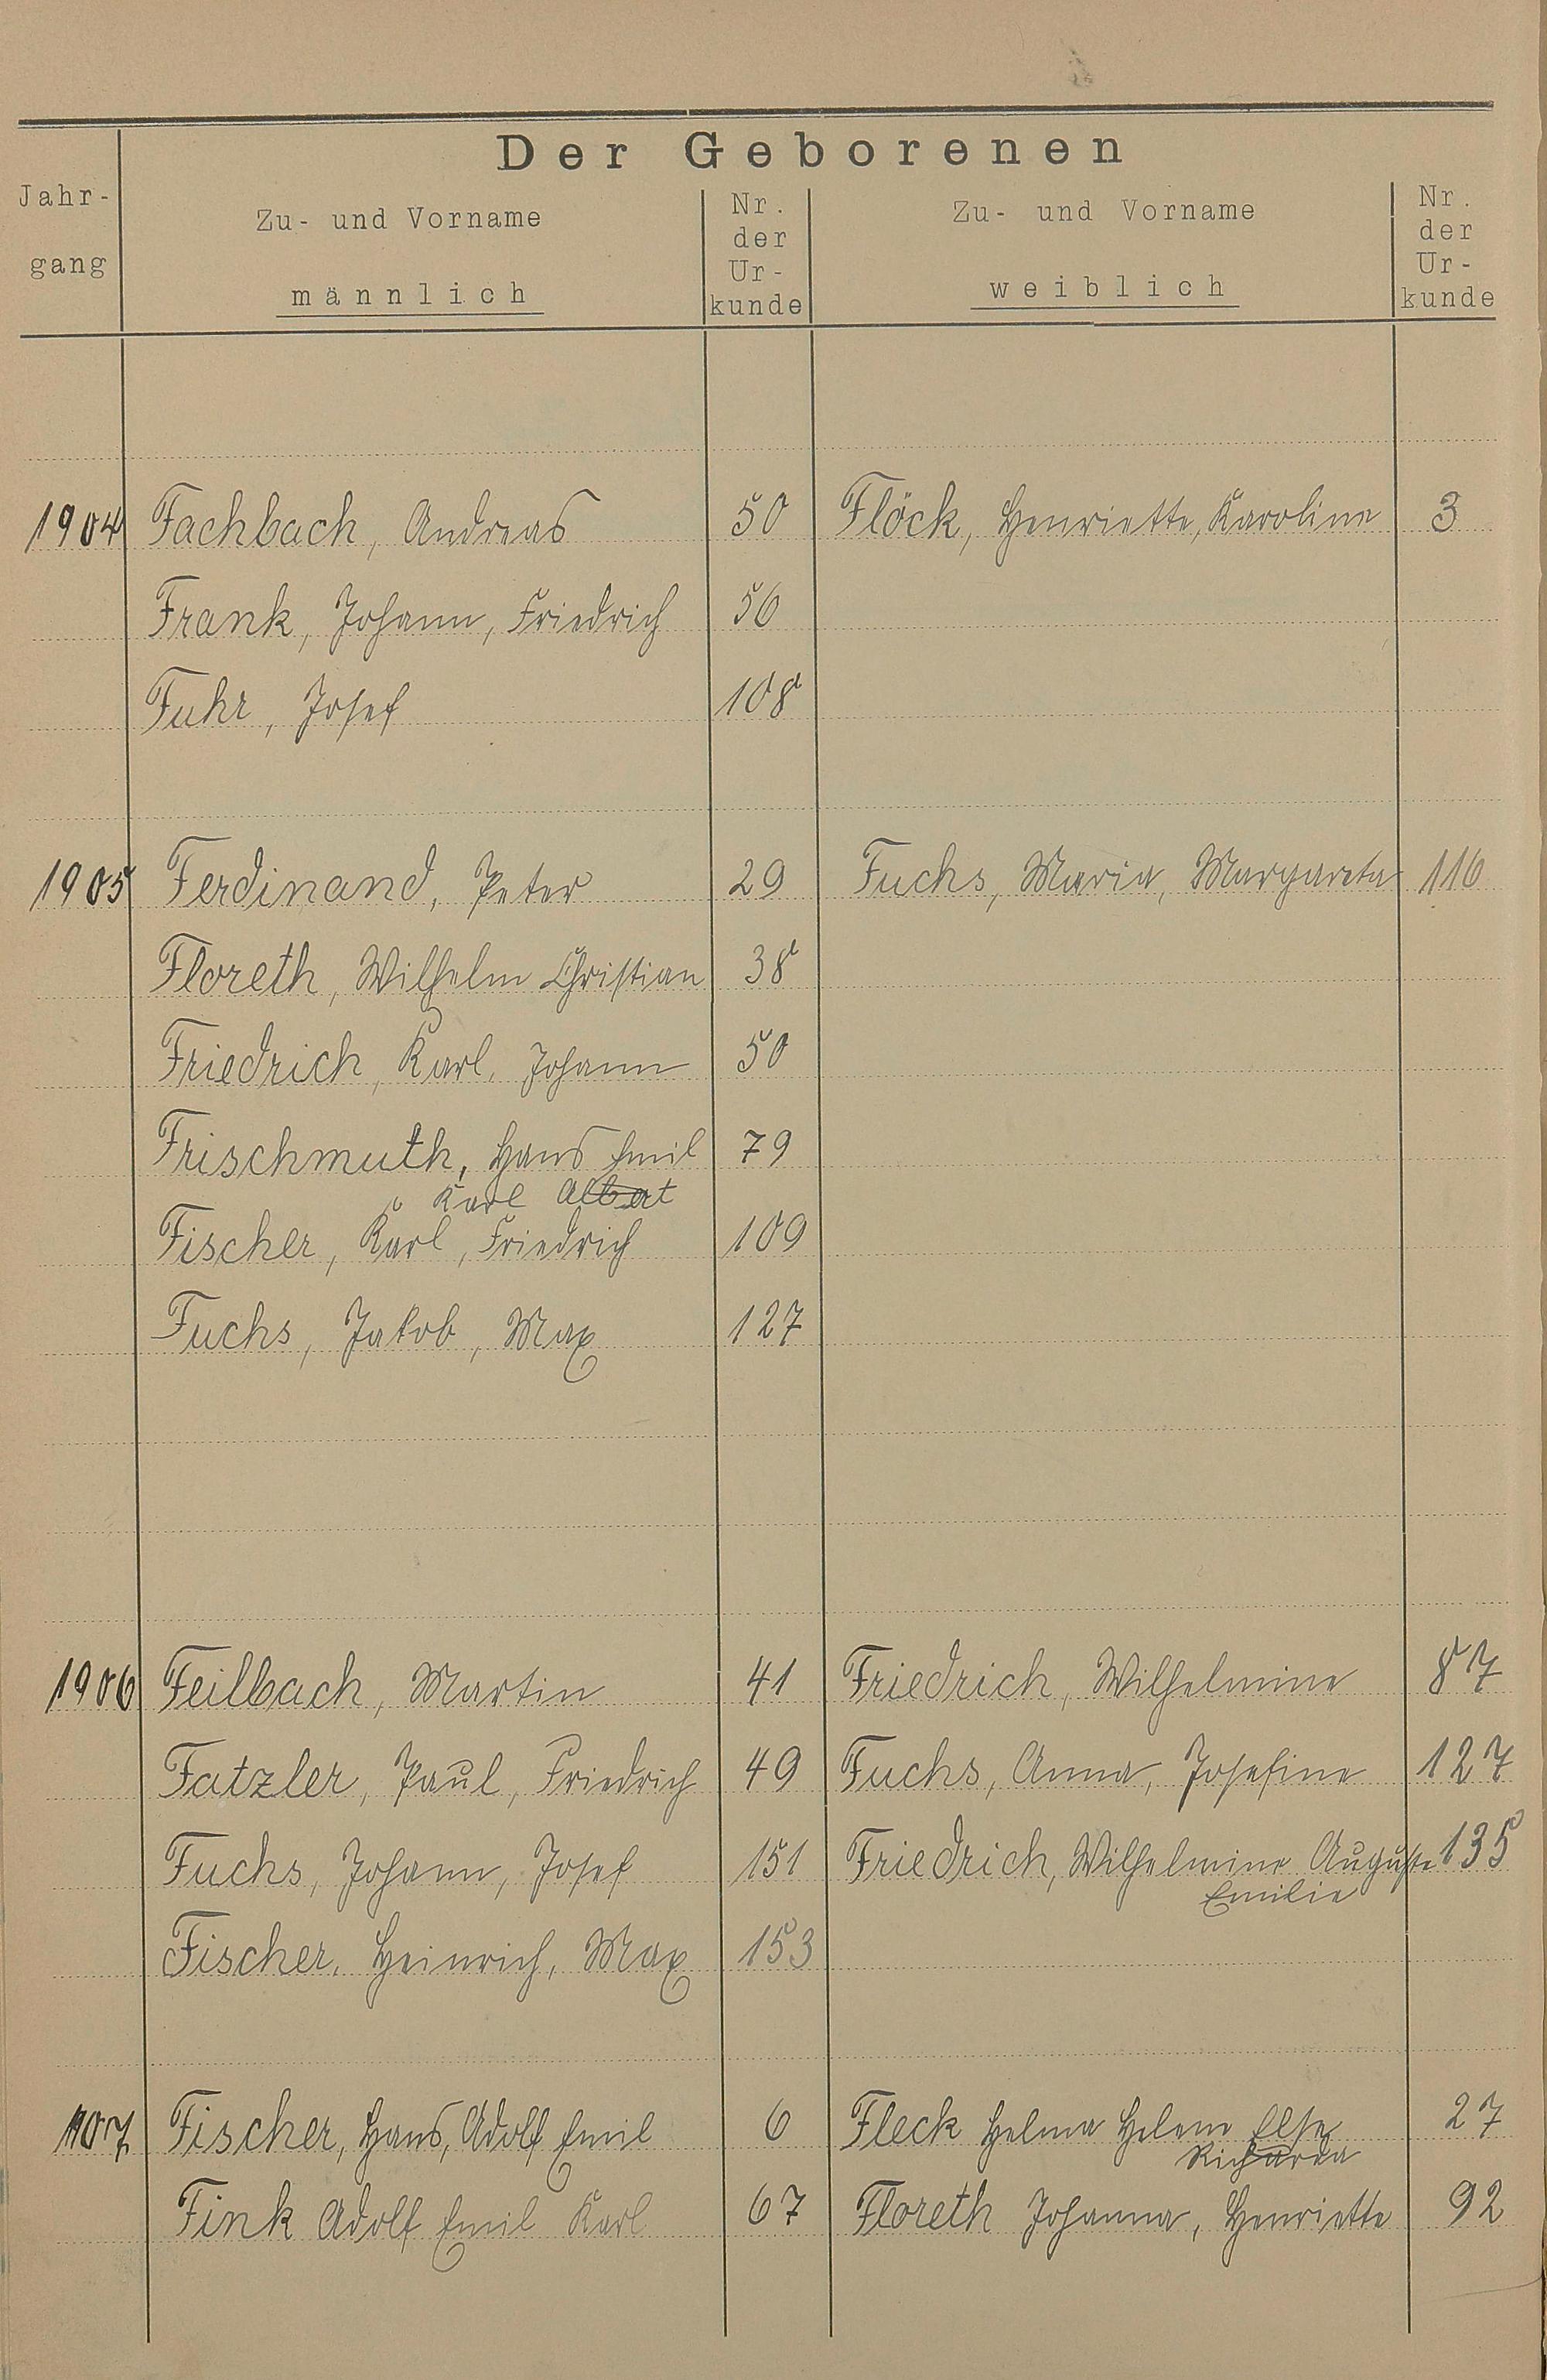 Der Geborenen
Jahr-
gang
Zu- und Vorname
männlich
Nr.
der
Ur-
kunde
Zu- und Vorname
weiblich
Nr.
der
Ur-
kunde
1904 Fachbach, Andreas 50 Flöck, Henriette, Karoline 3
Frank, Johann, Friedrich 56
Fuhr, Josef 108
1905 Ferdinand, Peter 29 Fuchs, Maria, Margareta 116
Floreth, Wilhelm Christian 38
Friedrich, Karl, Johann 50
Frischmuth, Hans Emil 79
Karl Albert
Fischer, Karl, Friedrich 109
Fuchs, Jakob, Max 127
1906 Feilbach, Martin 41 Friedrich, Wilhelmine 87
Fatzler, Paul, Friedrich 49 Fuchs, Anna, Josefine 127
Fuchs, Johann, Josef 151 Friedrich, Wilhelmine Auguste 135
Emilie
Fischer, Heinrich, Max 153
1907 Fischer, Hans, Adolf Emil 6 Fleck Helma Helene Else 27
Richarda
Fink Adolf Emil Karl 67 Floreth Johanna, Henriette 92